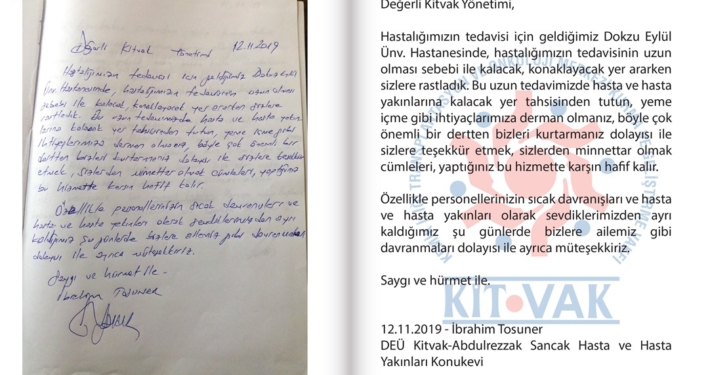 Değerli Kitvak Yönetimi 12.11.2019
Hastalığımızın tedavisi için geldiğimiz Dokuz Eylül
Ünv. Hastanesinde, hastalığımızın tedavisinin uzun olması
sebebi ile kalacak, konaklayacak yer ararken sizlere
rastladık. Bu uzun tedavimizde hasta ve hasta yakın
larına kalacak yer tahsisinden tutun, yeme içme gibi
ihtiyaçlarımıza derman olmanız, böyle çok önemli bir
dertten bizleri kurtarmanız dolayısı ile sizlere teşekkür
etmek, sizlerden minnettar olmak cümleleri, yaptığınız
bu hizmette karşın hafif kalır.
Özellikle personellerinizin sıcak davranışları ve
hasta ve hasta yakınları olarak sevdiklerimizden ayrı
kaldığımız şu günlerde bizlere ailemiz gibi davranmaları
dolayısı ile ayrıca müteşekkiriz.
Saygı ve hürmet ile.
İbrahim TOSUNER
Değerli Kitvak Yönetimi,
Hastalığımızın tedavisi için geldiğimiz Dokzu Eylül
Ünv. Hastanesinde, hastalığımızın tedavisinin uzun
olması sebebi ile kalacak, konaklayacak yer ararken
sizlere rastladık. Bu uzun tedavimizde hasta ve hasta
yakınlarını kalacak yer tahsisinden tutun, yeme
içme gibi ihtiyaçlarımıza derman olmanız, böyle çok
önemli bir dertten bizleri kurtarmanız dolayısı ile
sizlere teşekkür etmek, sizlerden minnettar olmak
cümleleri, yaptığınız bu hizmette karşın hafif kalır.
Özellikle personellerinizin sıcak davranışları ve hasta
ve hasta yakınları olarak sevdiklerimizden ayrı
kaldığımız şu günlerde bizlere ailemiz gibi
davranmaları dolayısı ile ayrıca müteşekkiriz.
Saygı ve hürmet ile.
KİT VAK
12.11.2019 - İbrahim Tosuner
DEÜ Kitvak-Abdulrezzak Sancak Hasta ve Hasta
Yakınları Konukevi